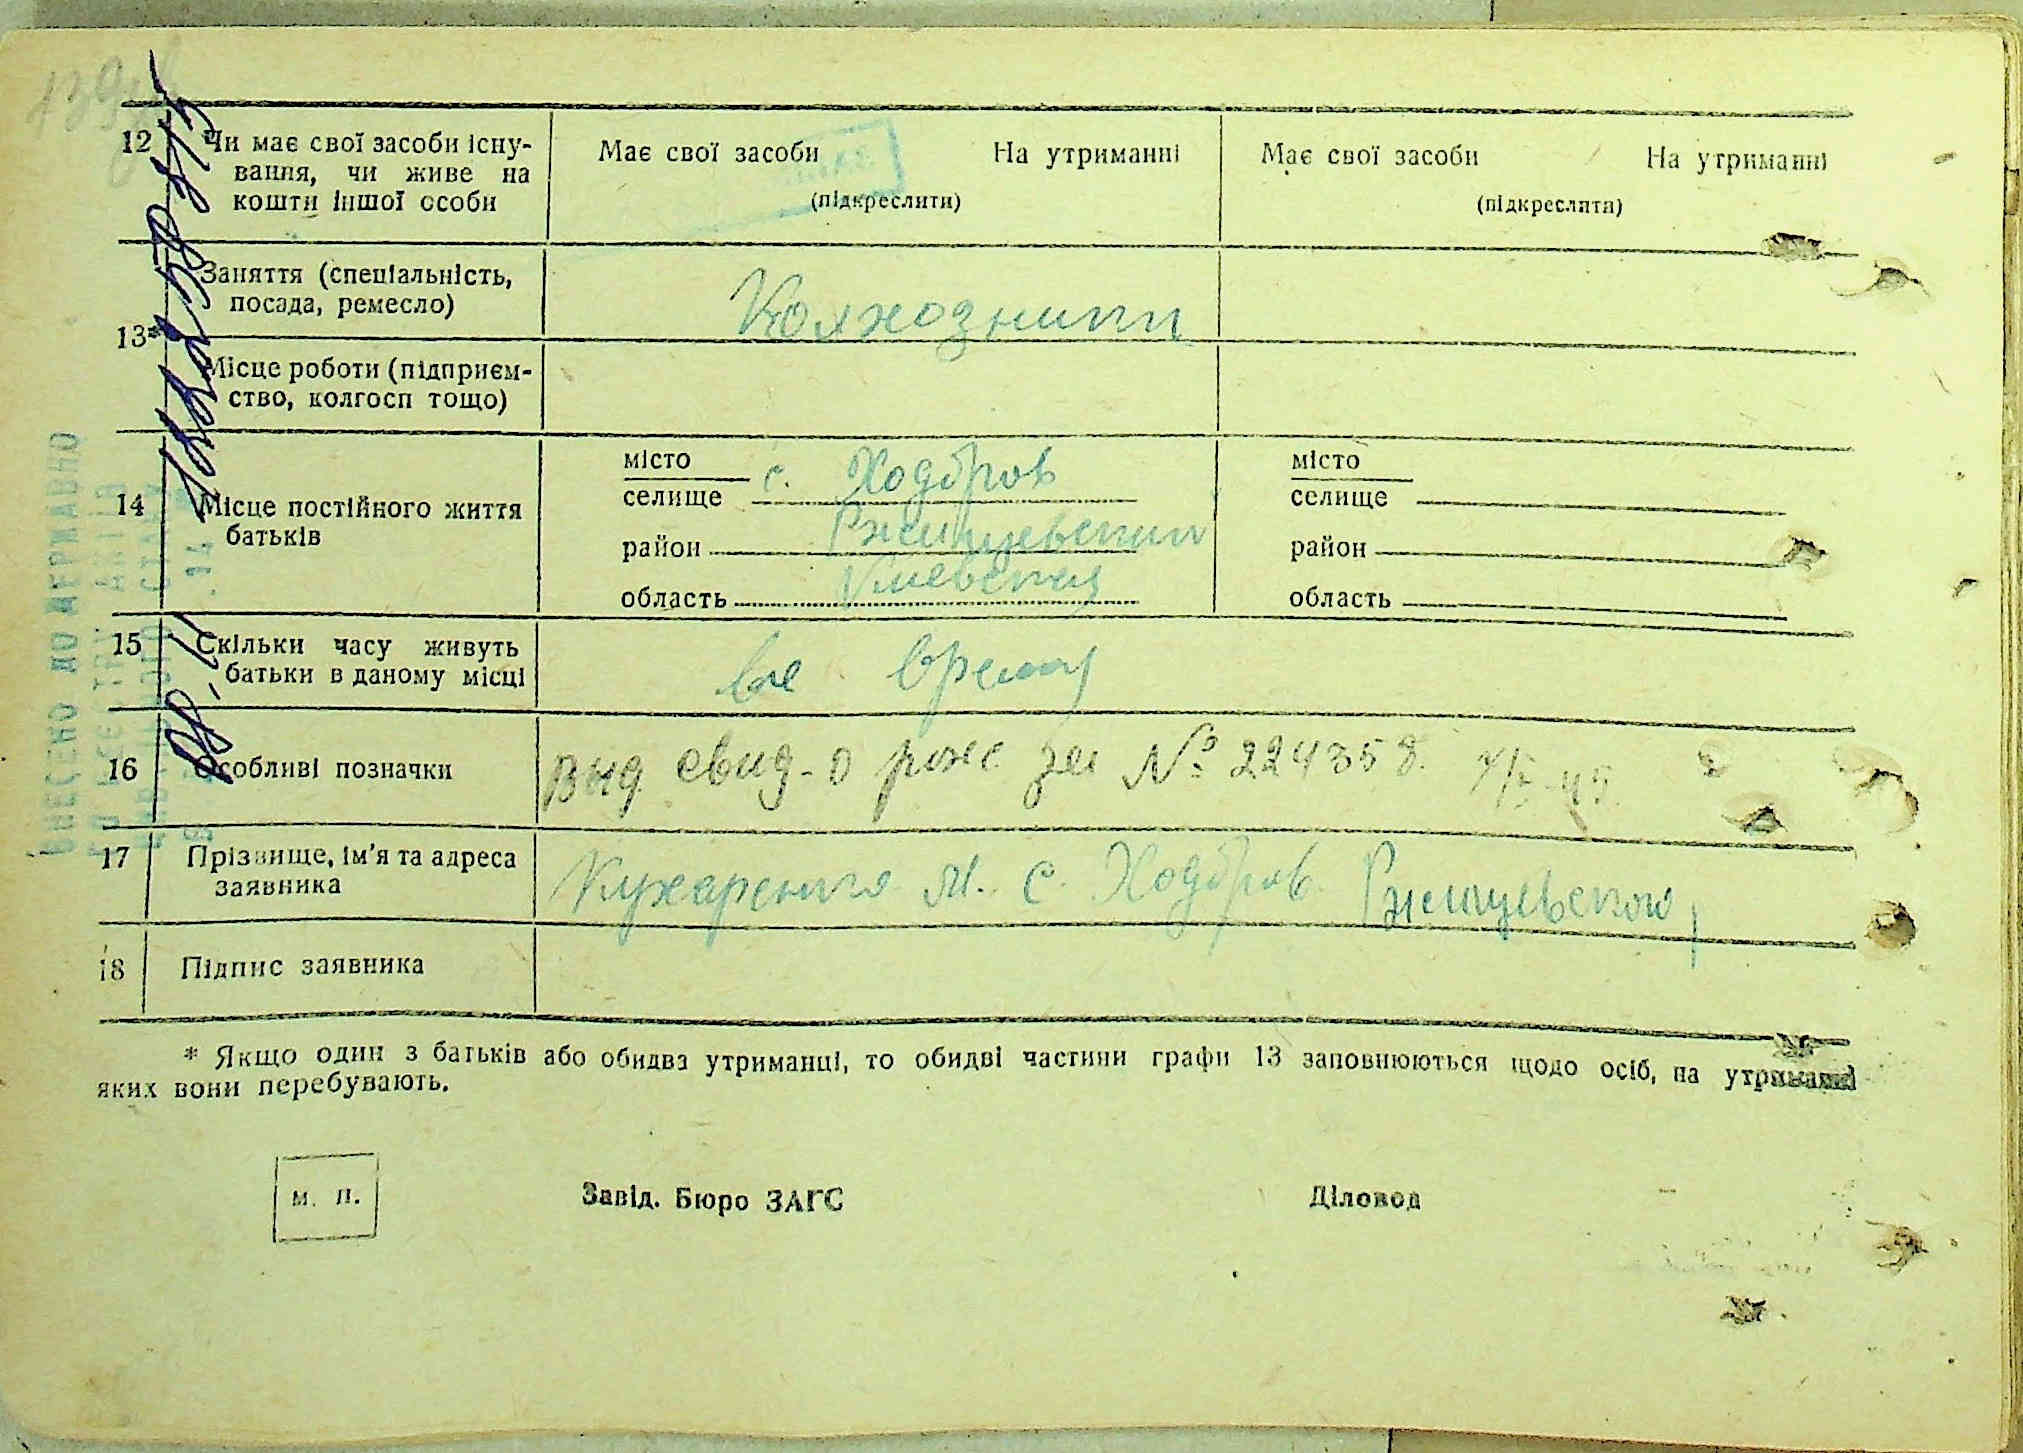 12 Чи має свої засоби існу-
вання, чи живе на
кошти іншої особи
Має свої засоби На утриманні
(підкреслити)
Має свої засоби На утриманні
(підкреслити)
13*
Заняття (спеціальність,
посада, ремесло)
Колхозники
Місце роботи (підприєм-
ство, колгосп тощо)
14 Місце постійного життя
батьків
місто
селище с. Ходоров
район Ржищевский
область Киевской
місто
селище
район
область
15 Скільки часу живуть
батьки в даному місці
все время
16 Особливі позначки
выд. свид-о рож за № 224358.
17 Прізвище, ім'я та адреса
заявника
Кухаренко М. с. Ходоров Ржищевского
18 Підпис заявника
* Якщо один з батьків або обидва утриманці, то обидві частини графи 13 заповнюються щодо осіб, на утриманні
яких вони перебувають.
м. п.
Завід. Бюро ЗАГС
Діловод
ВНЕСЕНО ДО ДЕРЖАВНО